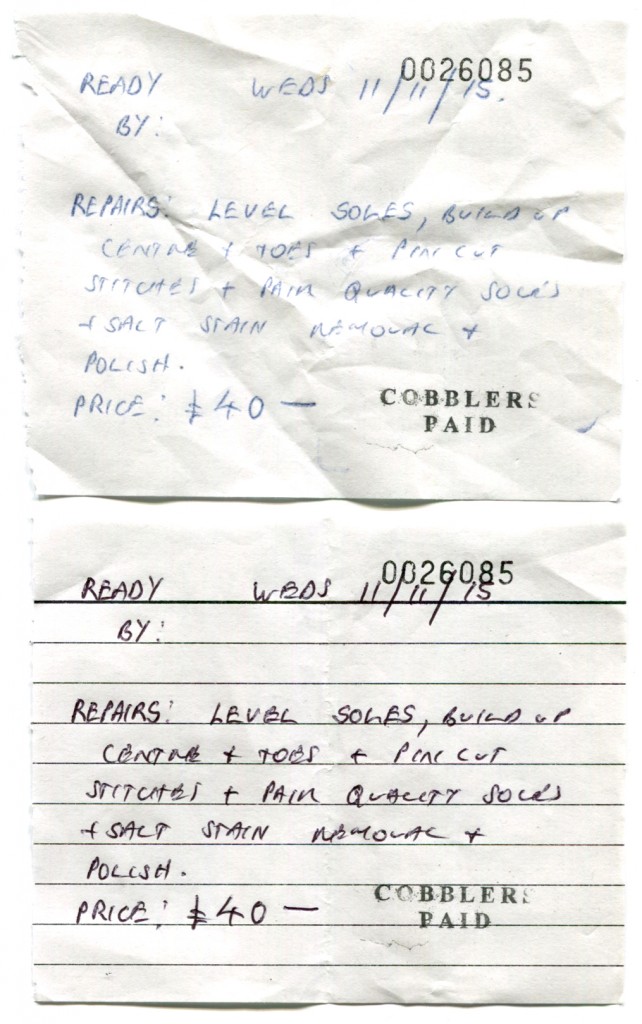 0026085
READY WEDS 11/11/15.
BY:
REPAIRS: LEVEL SOLES, BUILD UP
CENTRE + TOES + PIN CUT
STITCHES + PAIR QUALITY SOLES
+ SALT STAIN REMOVAL +
POLISH.
PRICE: £40 —
COBBLERS
PAID
0026085
READY WEDS 11/11/15
BY:
REPAIRS: LEVEL SOLES, BUILD UP
CENTRE + TOES + PIN CUT
STITCHES + PAIR QUALITY SOLES
+ SALT STAIN REMOVAL +
POLISH.
PRICE: £40 —
COBBLERS
PAID